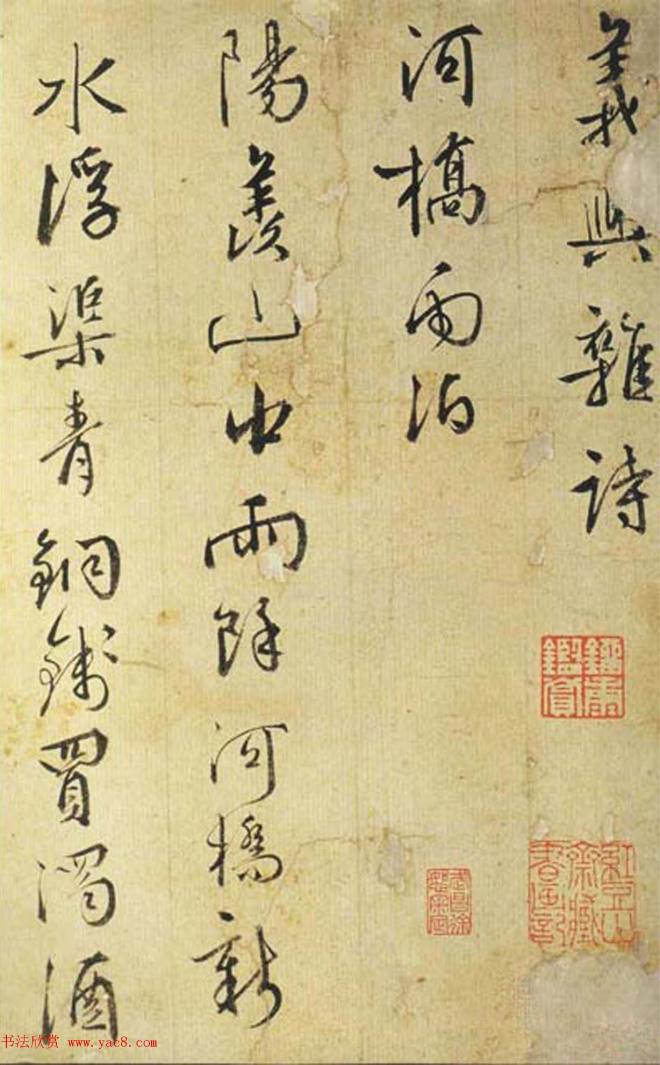 義興雜詩
河橋雨泊
陽羨山中雨餘河橋新
水浮渠青銅錢買濁酒
书法欣赏 www.yac8.com